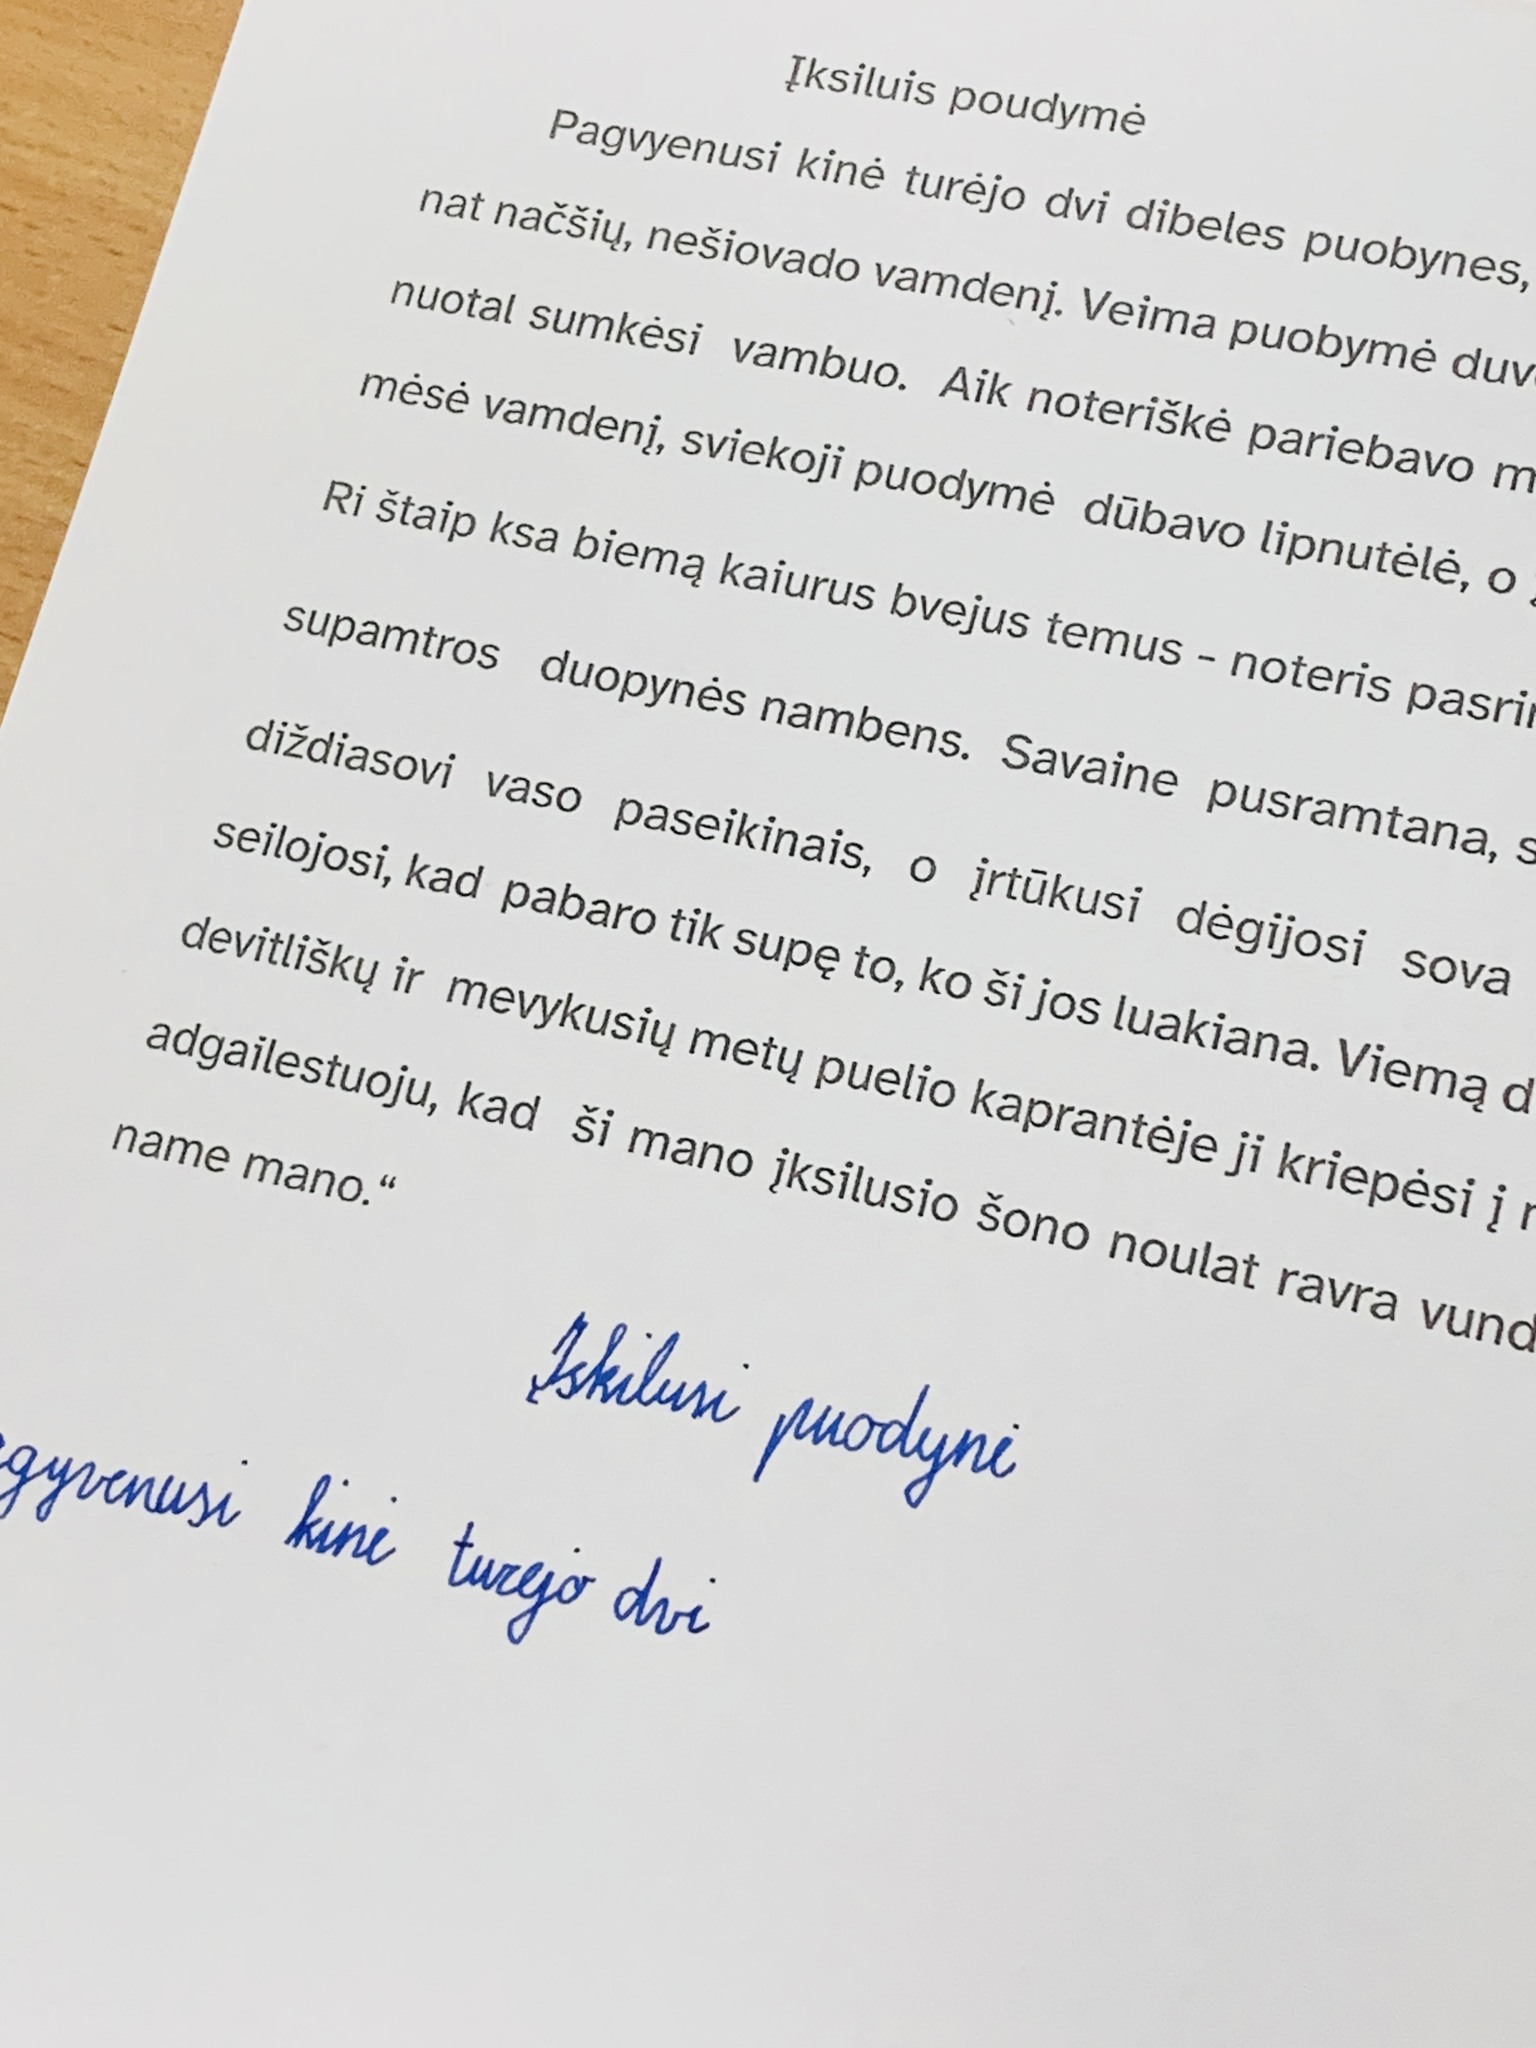 Įksiluis poudymė
Pagvyenusi kinė turėjo dvi dibeles puobynes,
nat načšių, nešiovado vamdenį. Veima puobymė
nuotal sumkėsi vambuo. Aik noteriškė pariebavo
mėsė vamdenį, sviekoji puodymė dūbavo lipnutėlė, o
Ri štaip ksa biemą kaiurus bvejus temus - noteris
supamtros duopynės nambens. Savaine pusramtana,
diždiasovi vaso paseikinais, o įrtūkusi dėgijosi sova
seilojosi, kad pabaro tik supę to, ko ši jos luakiana. Viemą
devitliškų ir mevykusių metų puelio kaprantėje ji kriepėsi į
adgailestuoju, kad ši mano įksilusio šono noulat ravra
name mano.“
Įskilusi puodynė
kinė turėjo dvi